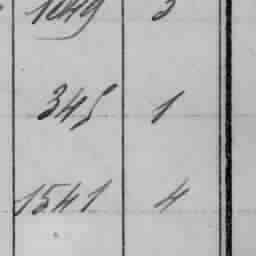 1049 3
345 1
1541 4